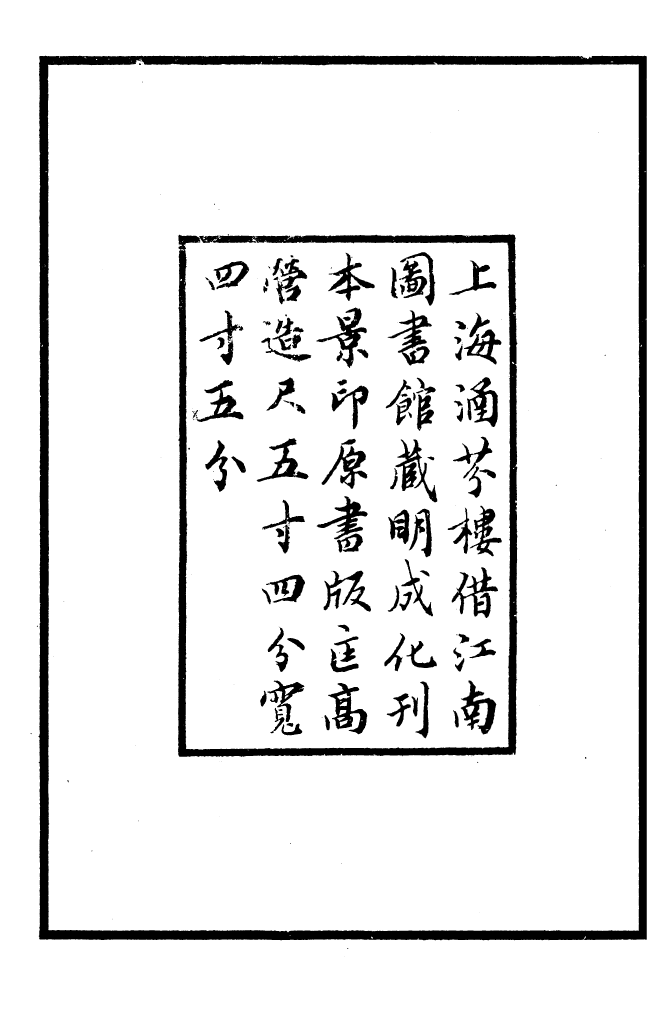 上海涵芬樓借江南
圖書館藏明成化刊
本景印原書版匡高
營造尺五寸四分寬
四寸五分